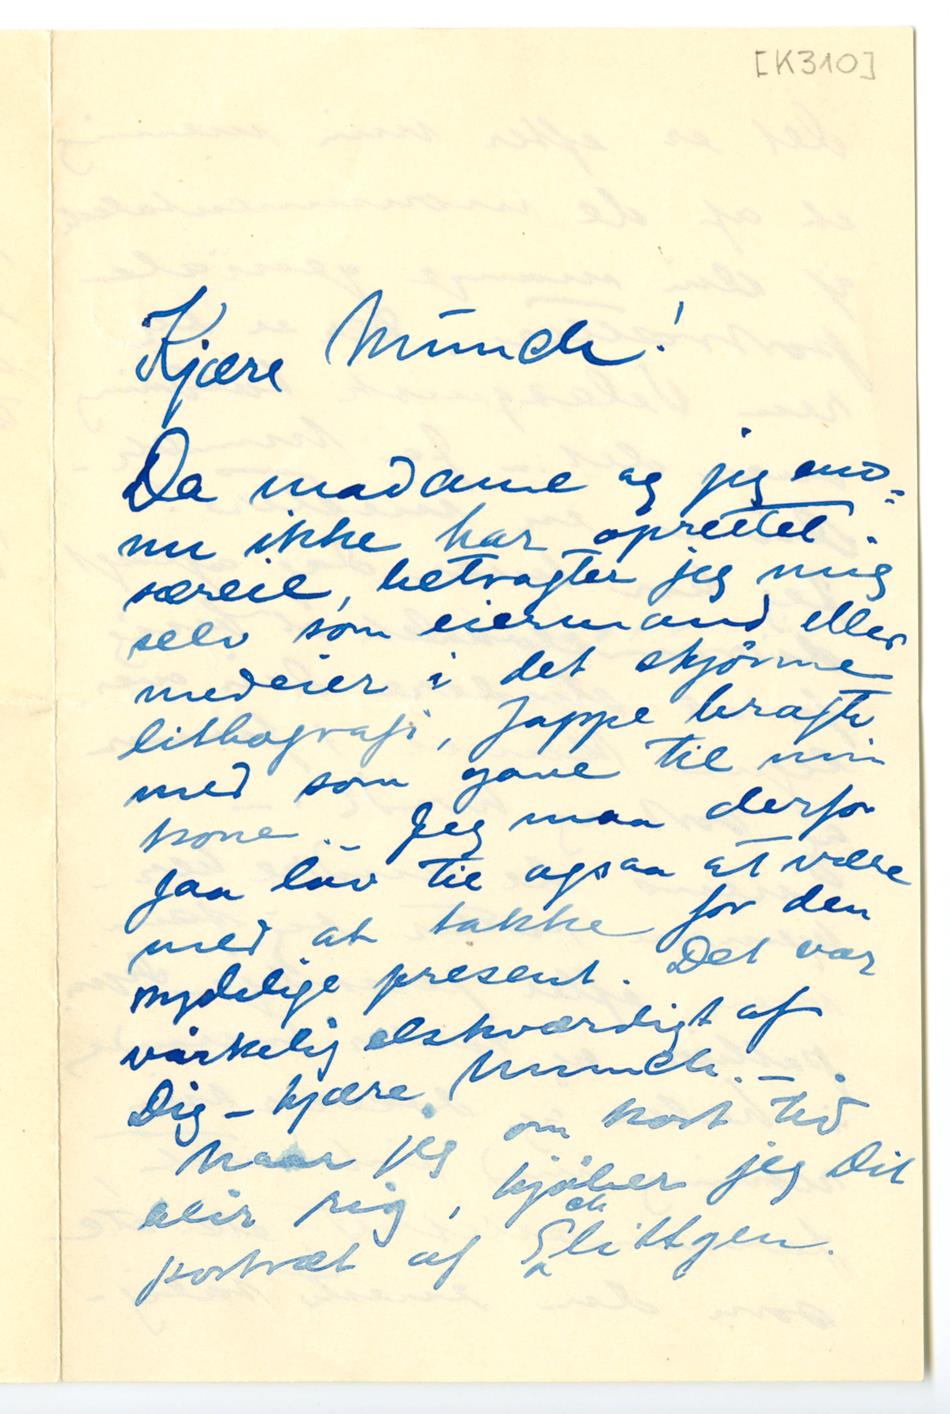 [K310]
Kjære Munch!
Da madame og jeg endnu
nu ikke har oprettet
særeie, betragter jeg mig
selv som eiermand eller
medeier i det skjønne
lithografi, Jappe bragte
med som gave til min
kone. – Jeg maa derfor
faa lov til ogsaa at være
med at takke for den
nydelige present. Det var
virkelig elskværdigt af
Dig – kjære Munch. –
Naar jeg om kort tid
blir rig, kjøber jeg Dit
portræt af Schlittgen.